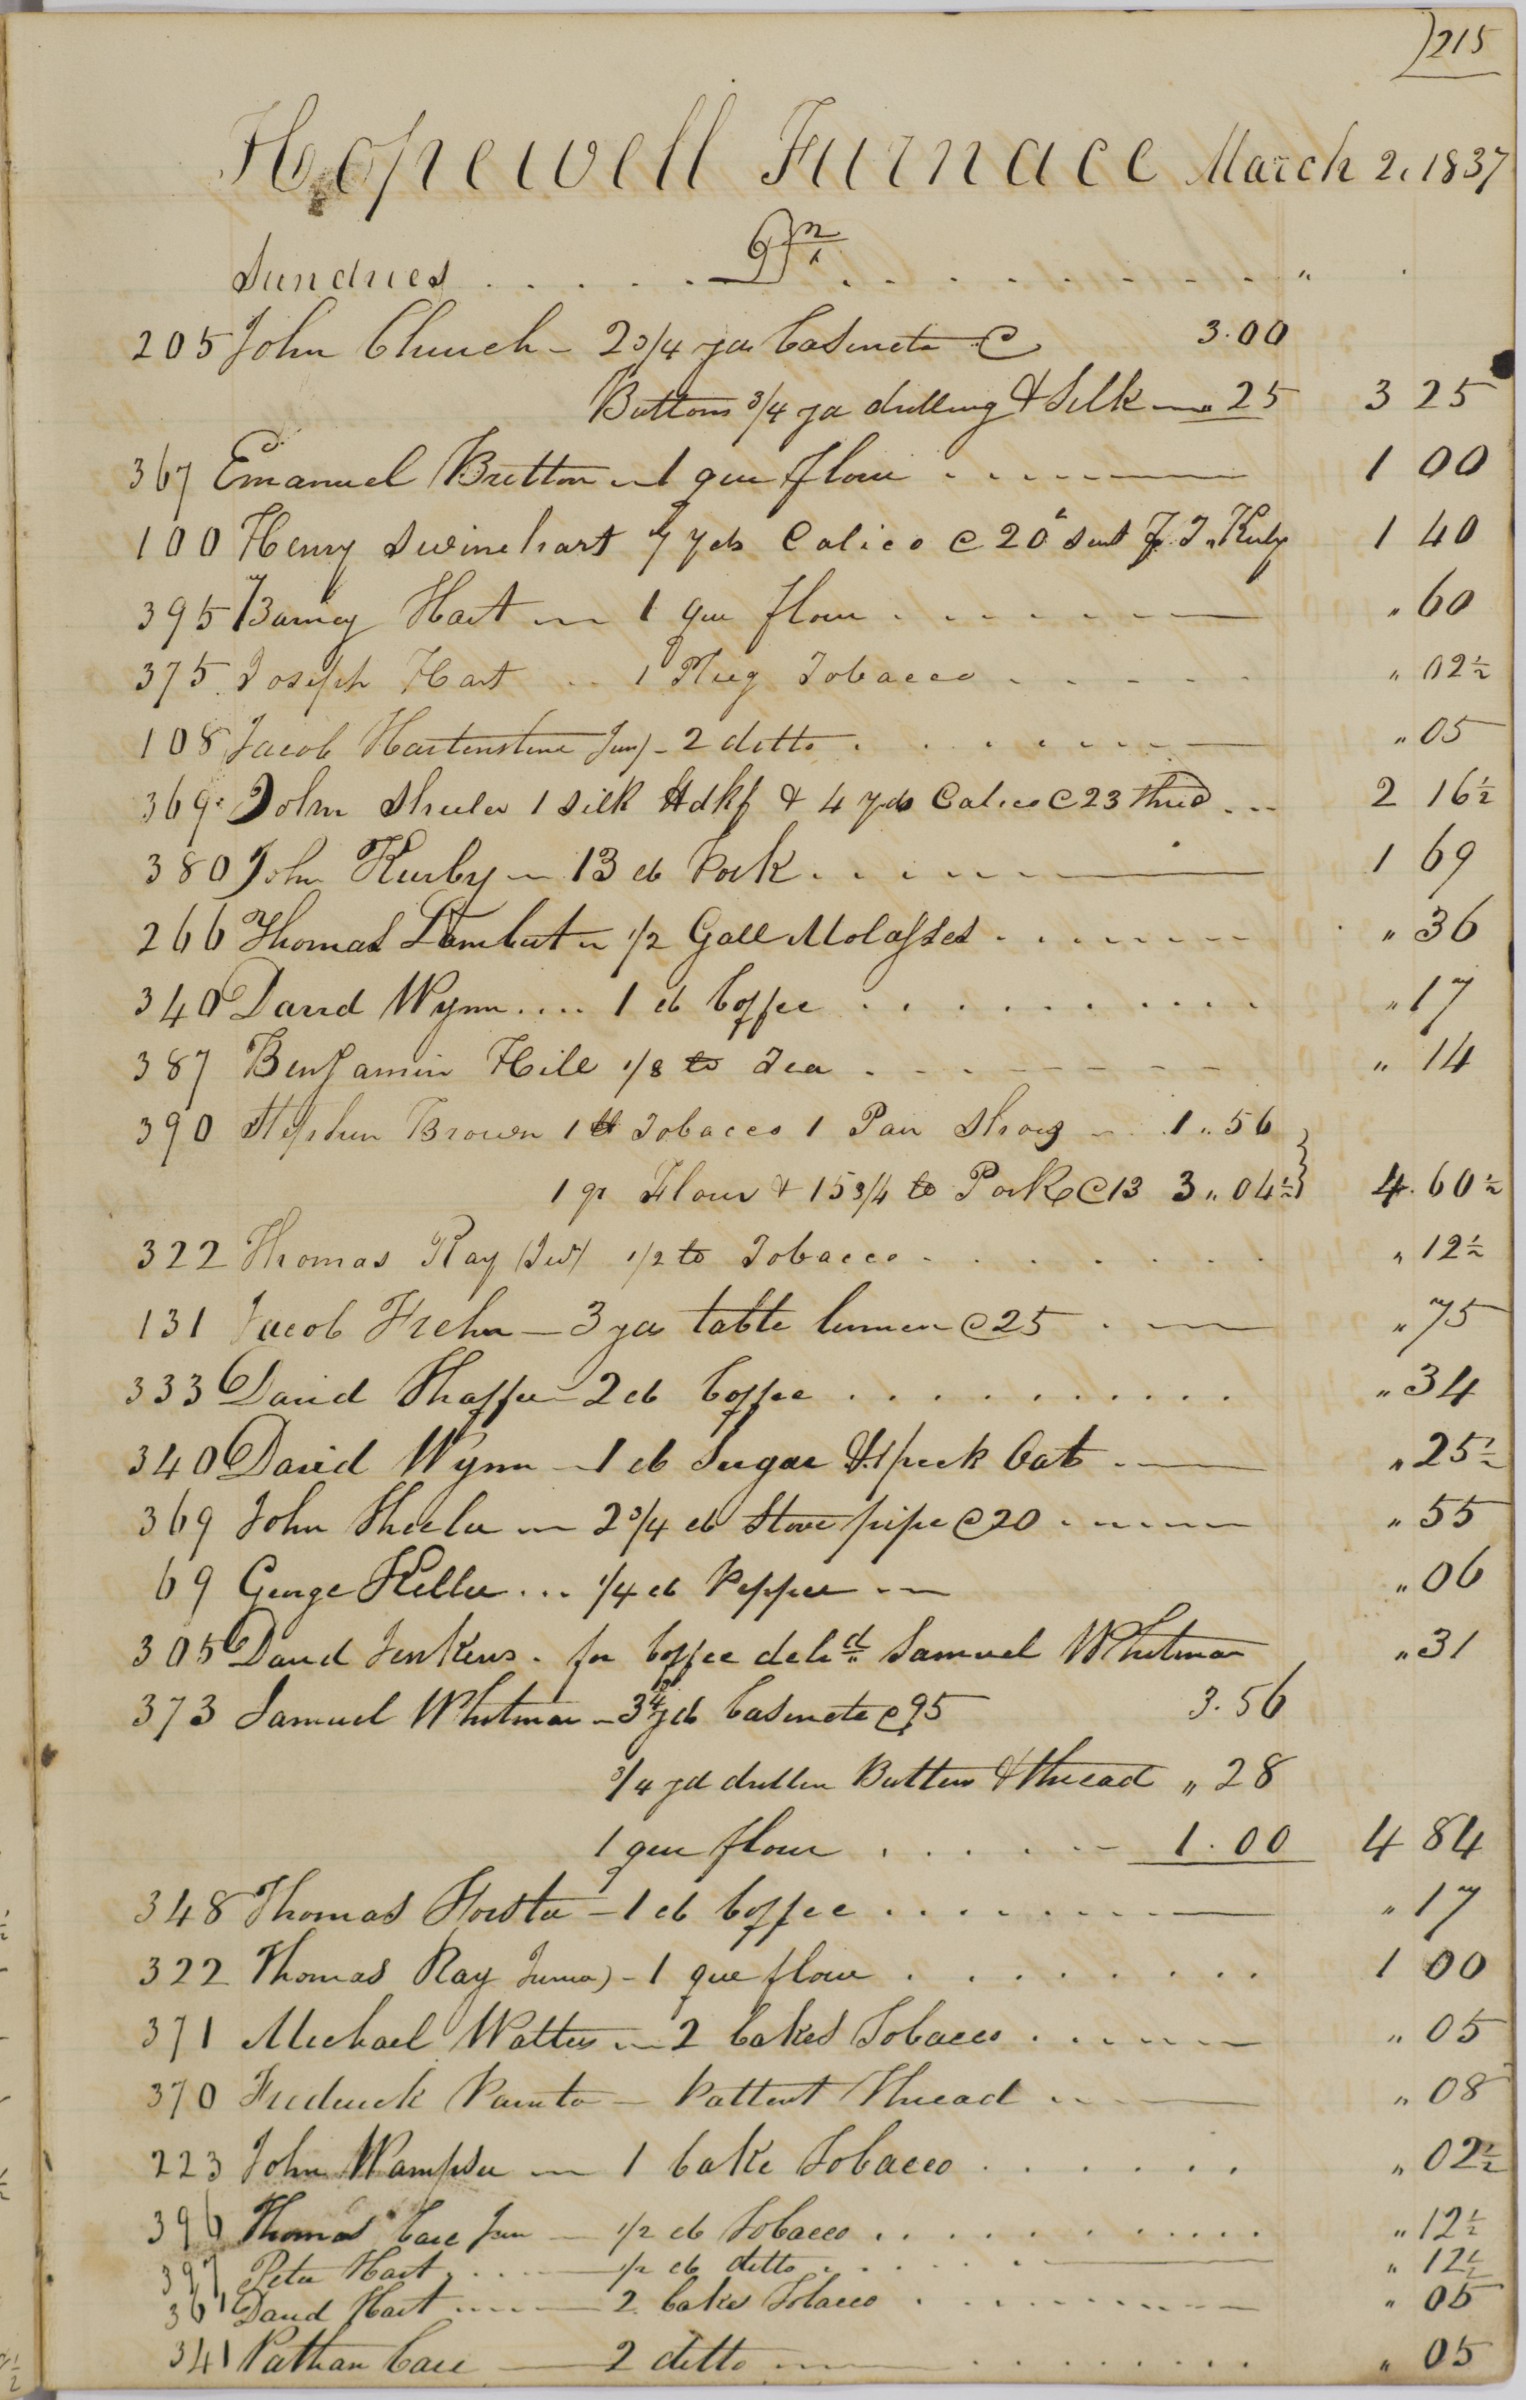 215
Hopewell Furnace March 2, 1837
Sundries . . . . . Dr . . . . . . . . . "
205 John Church - 2 3/4 yds Casinete @ 3.00
Buttons 3/4 yd drilling & Silk — " 25 3 25
367 Emanuel Britton - 1 qr flour . . . . 1 00
100 Henry Swinehart 7 yds Calico @ 20 c Sent J. T. Kirby 1 40
395 Barney Hart — 1 qr flour . . . . . . " 60
375 Joseph Hart .. 1 Plug Tobacco . . . . . " 02 1/2
108 Jacob Hartenstine Jun) - 2 ditto . . . . . . " 05
369 John Sheeler 1 Silk Hdkf & 4 yds Calico @ 23 thrd . . . 2 16 1/2
380 John Kurby — 13 lb Pork . . . . . . 1 69
266 Thomas Lambert — 1/2 Gall Molasses . . . . . . " 36
340 David Wynn .... 1 lb Coffee . . . . . . . . " 17
387 Benjamin Hill 1/8 lb Tea . . . . . . . " 14
390 Stephen Brown 1 lb Tobacco 1 Pair Shoes — 1 " 56
1 qr Flour & 15 3/4 lb Pork @ 13 3 " 04 1/2 4. 60 1/2
322 Thomas Ray (Jur) 1/2 lb Tobacco . . . . . . " 12 1/2
131 Jacob Frehn — 3 yds table linnen @ 25 . — " 75
333 David Shaffer — 2 lb Coffee . . . . . . . . " 34
340 David Wynn — 1 lb Sugar & 1 peck Oats . — " 25 1/2
369 John Sheeler — 2 3/4 lb Stove pipe @ 20 . . . . " 55
69 George Heller ... 1/4 lb Pepper .. — " 06
305 David Jenkins . for Coffee deld Samuel Whitman " 31
373 Samuel Whitman — 3 3/4 yds Casinete @ 95 3.56
3/4 yd drillen Buttens & thread " 28
1 qr flour . . . . . 1.00 4 84
348 Thomas Foster — 1 lb Coffee . . . . . . . " 17
322 Thomas Ray Junior) - 1 qr flour . . . . . . . 1 00
371 Michael Watters — 2 Cakes Tobacco . . . . . " 05
370 Frederick Painter — Pattent Thread . . . — " 08
223 John Wampsher — 1 Cake Tobacco . . . . . . " 02 1/2
396 Thomas Care Jun — 1/2 lb Tobacco . . . . . . . . " 12 1/2
397 Peter Hart . . . . — 1/2 lb ditto . . . . . . — " 12 1/2
361 David Hart . . . — 2 Cakes Tobacco . . . . . . . . " 05
341 Nathan Care — 2 ditto . . . . . . . . " 05